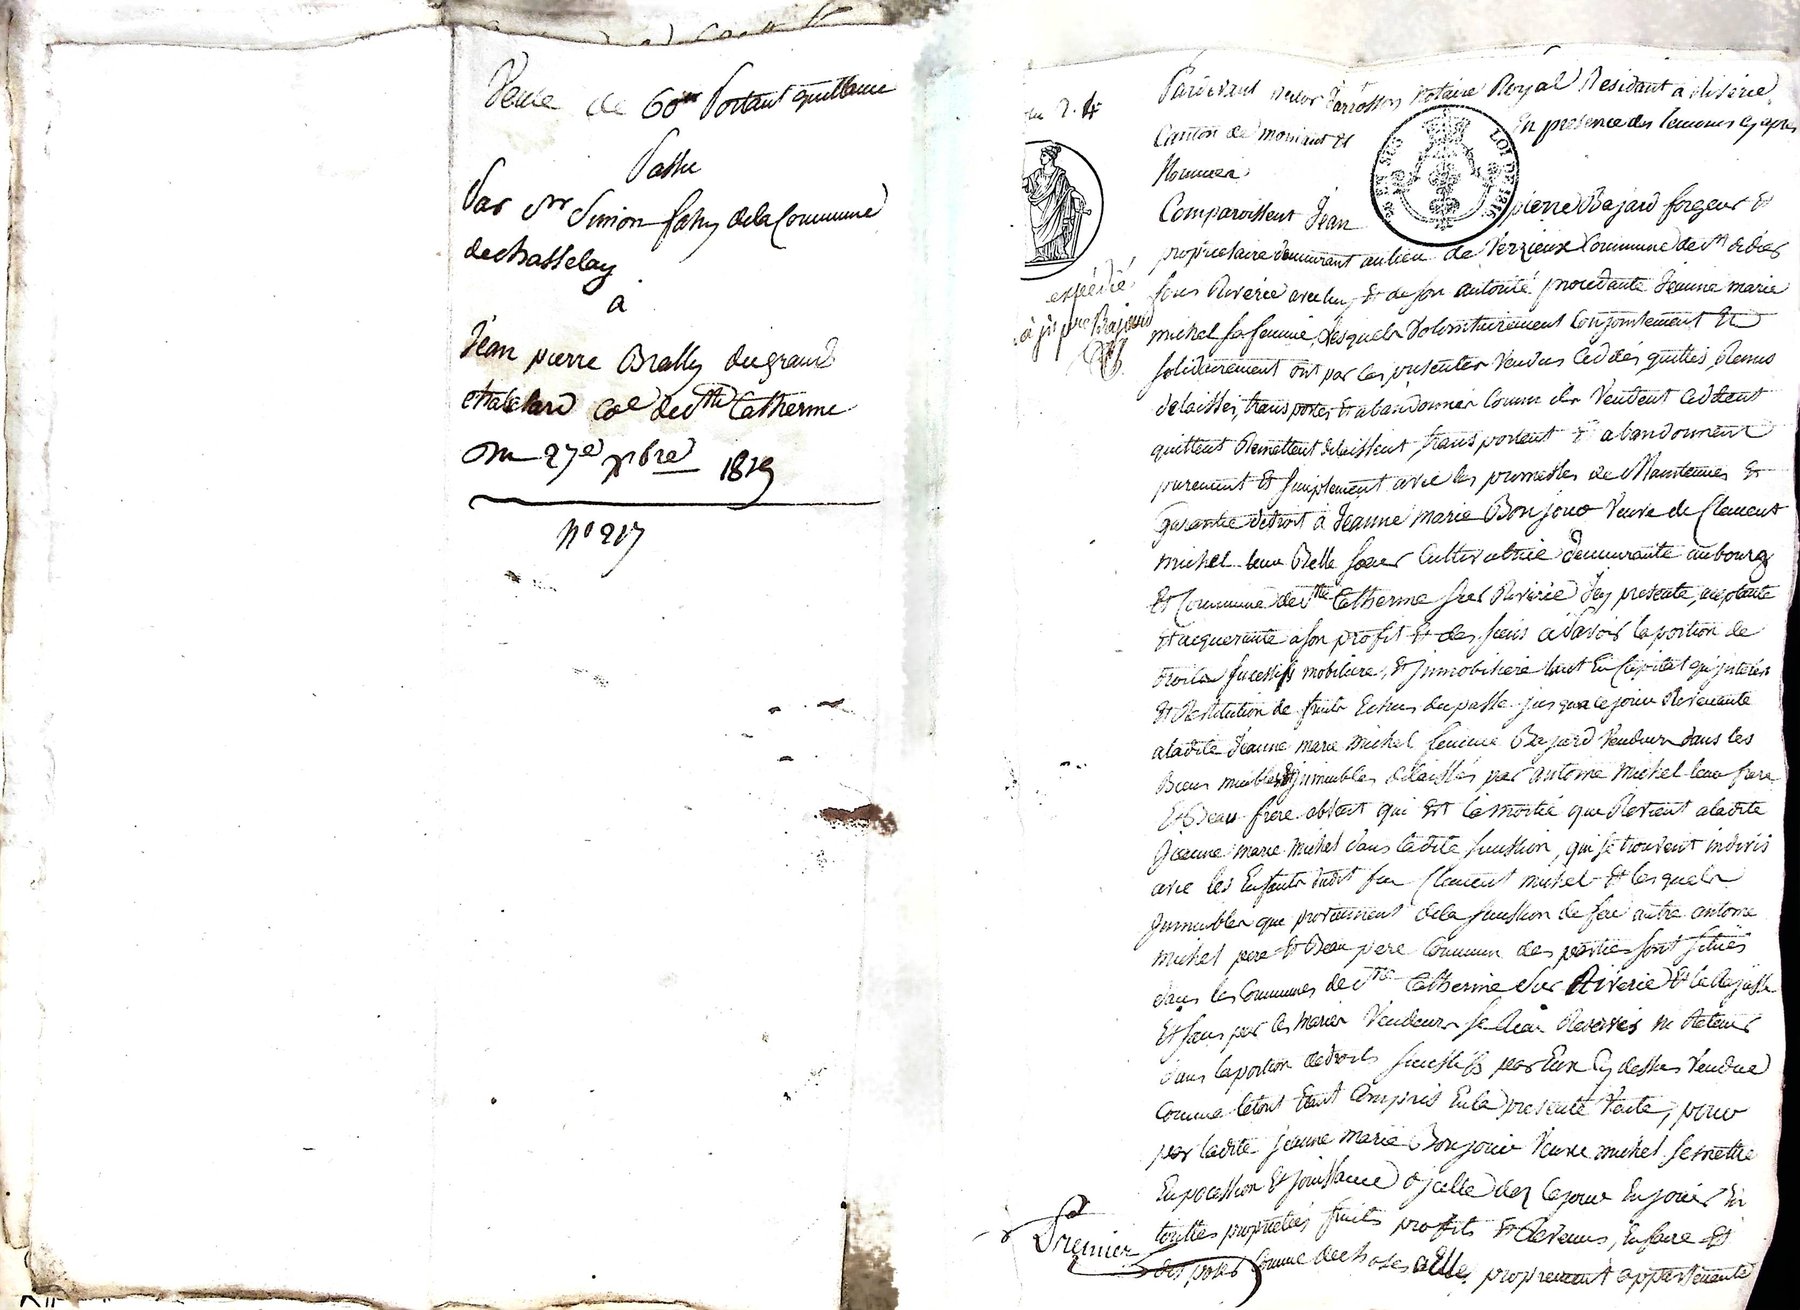 Vente de 60# Portant quittance
Passée
Par Sr Simon fahy de la Commune
de chasselay
à
Jean pierre Brally du grand
chatelard Coe de Ste Catherine
Du 27e xbre 1819
No 217
du 2. #
expédié
à jn pre Bajard
Pardevant Notaire Royal Résidant à Riverie,
Canton de mornant et En presence des temoins cy après
Nommés
LOI DE 1816
Comparaissent Jean pierre Bajard forgeur et
propriétaire demeurant au lieu de Verzieux Commune de St didier
sous Riverie avec luy Et de son autorité procédante Jeanne marie
michel sa femme, Lesquels Volontairement Conjointement Et
solidairement ont par les présentes Vendus Ceddés quittés Remis
délaissés, transportés et abandonnés Comme ils Vendent Ceddent
quittent Remettent délaissent, transportent Et abandonnent
purement Et simplement avec les promesses de Maintenues Et
garantie de droit à Jeanne marie Bonjour Veuve de Clement
michel leur Belle soeur Cultivatrice demeurante au bourg
Et Commune de Ste Catherine sur Riverie Icy presente, acceptante
Et acquerante a son profit Et des siens a Savoir la portion de
droits sucessifs mobiliaire, Et Immobiliere tant En Capital qu'interets
Et Restitution de fruits Echus du passé jusqu'a ce jour Revenante
a ladite Jeanne marie Michel femme Bajard Vendeur dans les
Biens meubles Et immeubles délaissés par antoine Michel leur frere
Et Beau frère absent qui Est la moitié que Revient a ladite
Jeanne marie michel dans ladite succession, qui se trouvent indivis
avec les Enfants dudit feu Clement michel Et lesquels
Immeubles que proviennent de la succession de feu autre antoine
michel pere Et Beau pere Commun des parties sont situés
dans les Communes de Ste Catherine sur Riverie Et
Et sans par les mariés Vendeurs se Rien Reserver ni Retenir
dans la portion de droits sucessifs par Eux Cy dessus Vendue
Comme le tout Etant Compris En la presente Vente, pour
par ladite jeanne marie Bonjour Veuve michel se mettre
En possession Et jouissance d'jcelle dez ce jour En jouir En
touttes proprietés fruits profits Et Revenus, En faire Et
disposer Comme de choses a Elle proprement appartenante
Premier